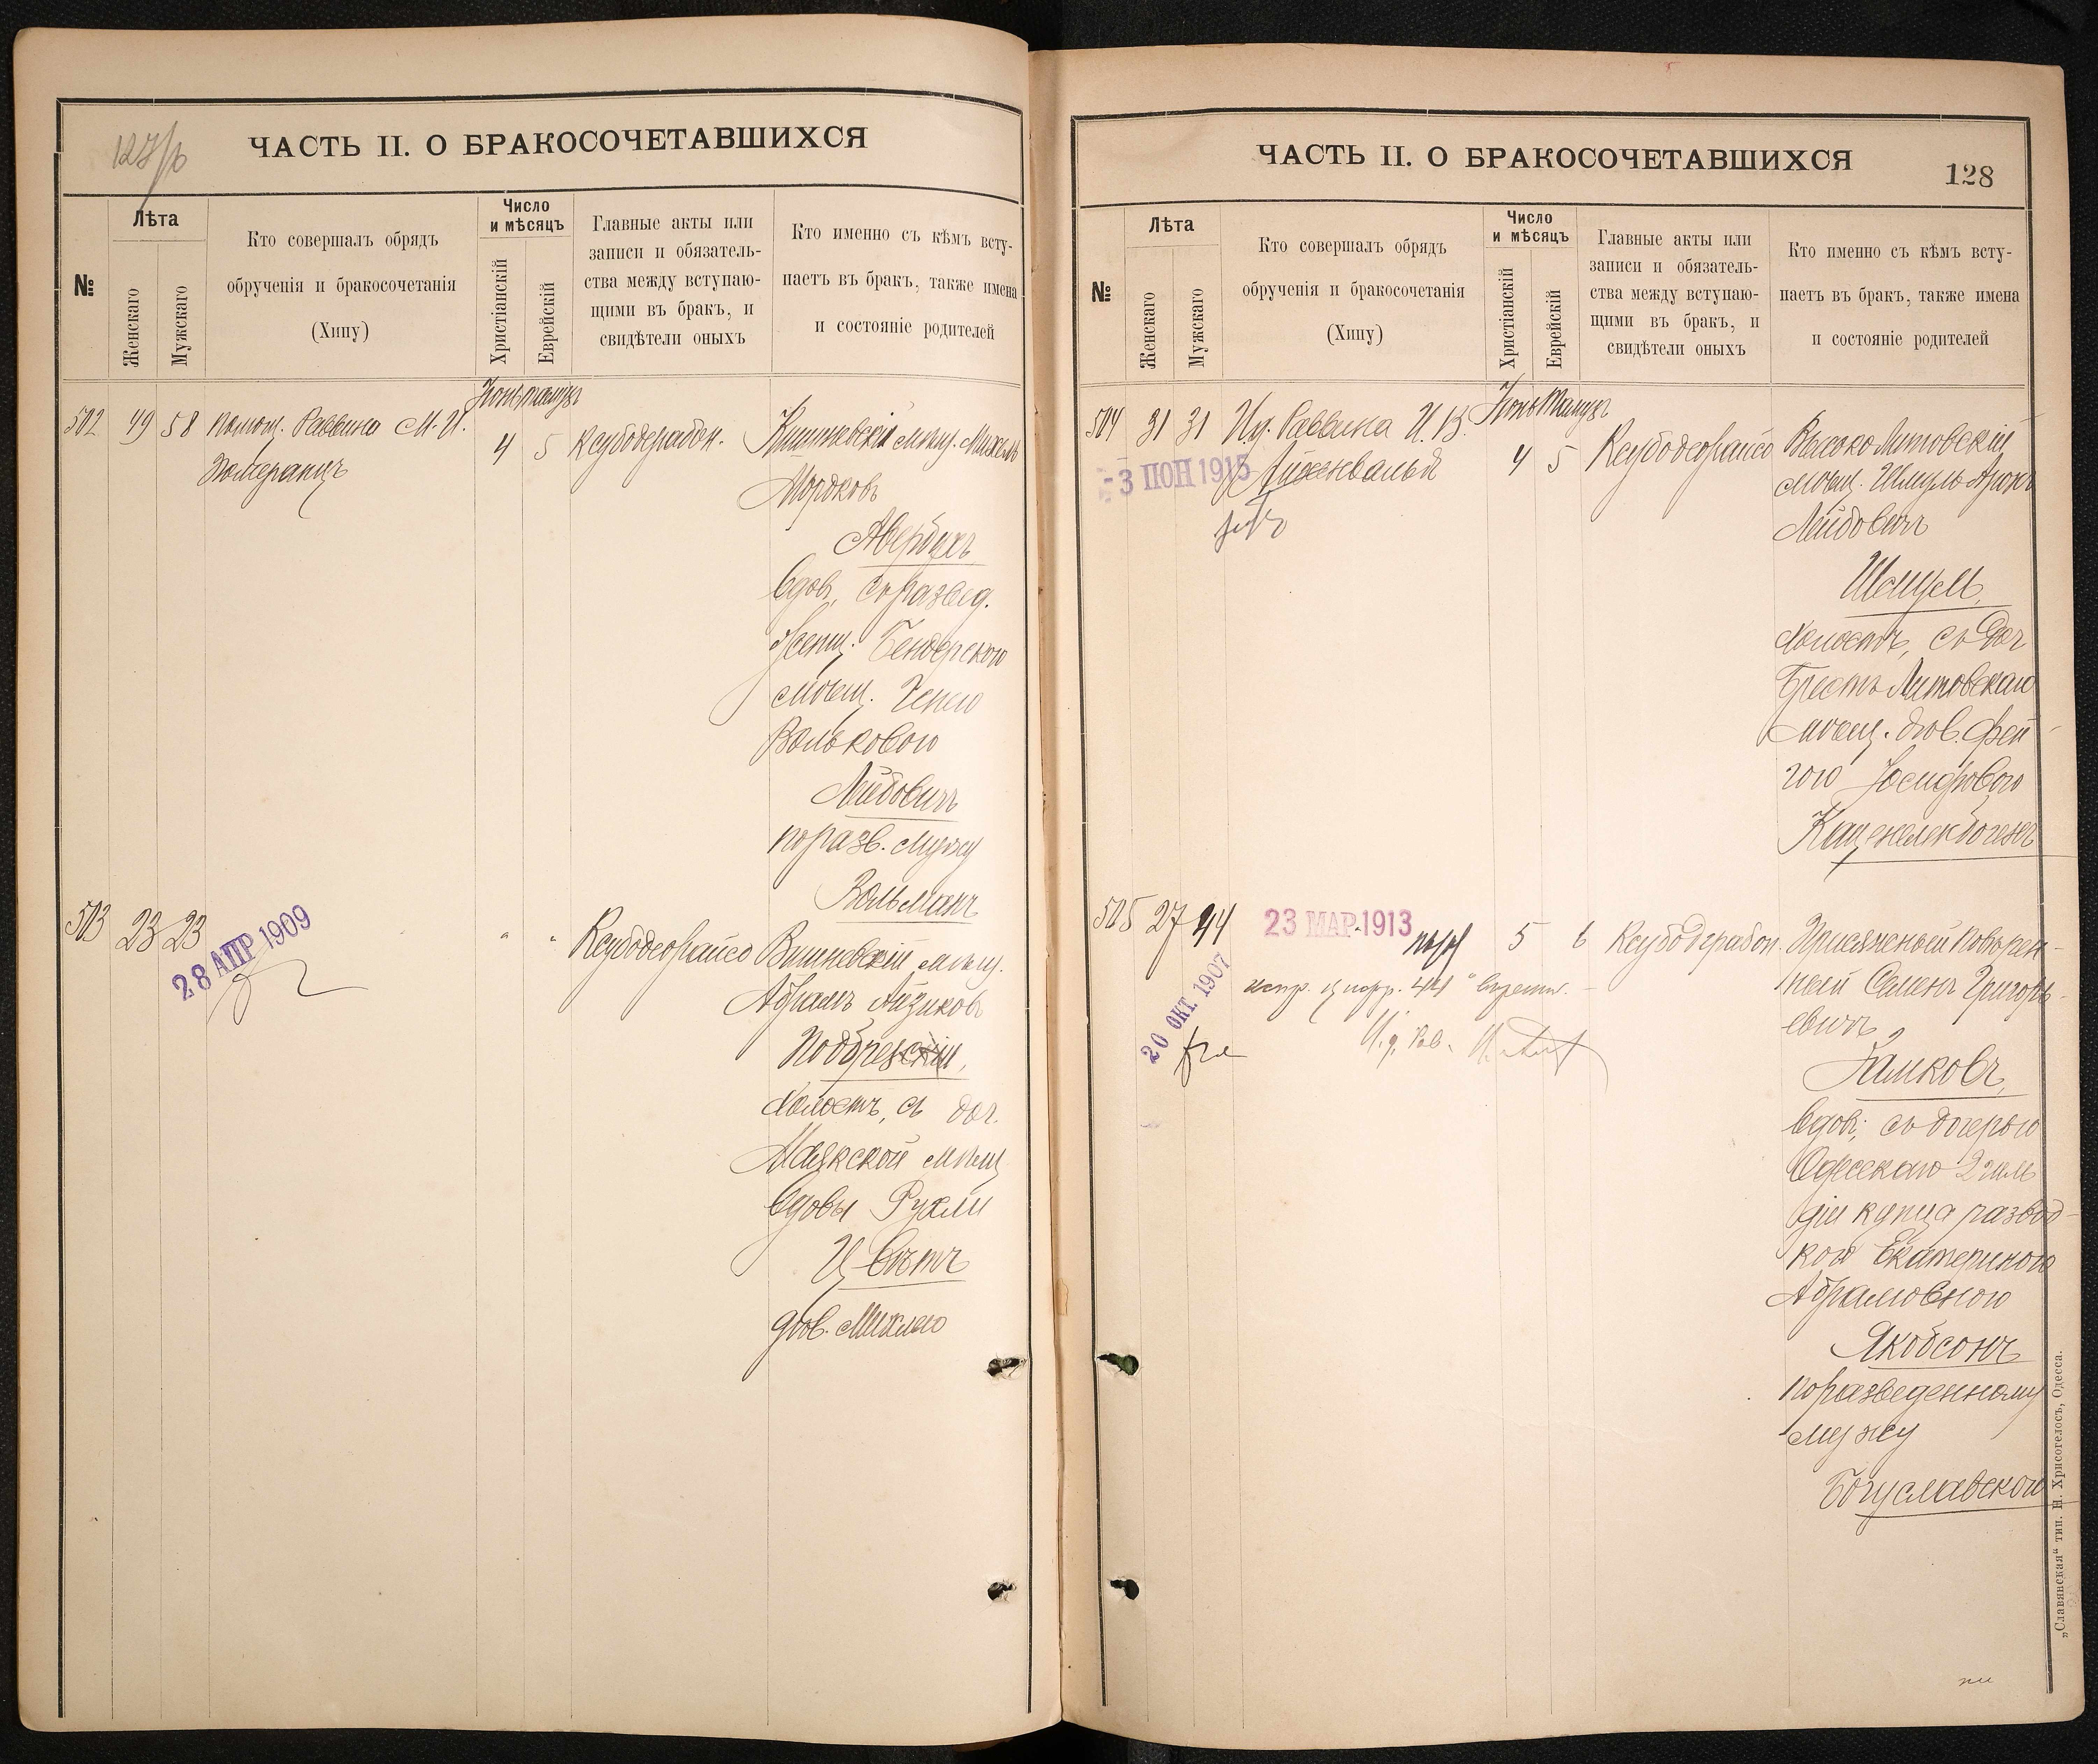 127/б
ЧАСТЬ II. О БРАКОСОЧЕТАВШИХСЯ
№
Лѣта
Женскаго
Мужскаго
Кто совершалъ обрядъ
обрученія и бракосочетанія
(Хипу)
Число
и мѣсяцъ
Христіанскій
Еврейскій
Главные акты или
записи и обязатель-
ства между вступаю-
щими въ бракъ, и
свидѣтели оныхъ
Кто именно съ кѣмъ всту-
паетъ въ бракъ, также имена
и состояніе родителей
Іюнь Тамузъ
502 49 58 Помощ. Раввина М. И.
Померанцъ
4 5
Кишиневскій мѣщ. Михель
Мордковъ
Авербухъ
вдов., съ развед.
женщ. Бендерского
мѣщ.
Вольковою
Лейбовичъ
по разв. мужу
Вольманъ
503 23 23
28 АПР 1909
" "
мѣщ.
Абрамъ Айзиковъ
Подбрезскій,
холостъ, съ доч.
Маякской мѣщ.
вдовы Рухли
Цвѣтъ
дѣв. Михлею
ЧАСТЬ II. О БРАКОСОЧЕТАВШИХСЯ
128
№
Лѣта
Женскаго
Мужскаго
Кто совершалъ обрядъ
обрученія и бракосочетанія
(Хипу)
Число
и мѣсяцъ
Христіанскій
Еврейскій
Главные акты или
записи и обязатель-
ства между вступаю-
щими въ бракъ, и
свидѣтели оныхъ
Кто именно съ кѣмъ всту-
паетъ въ бракъ, также имена
и состояніе родителей
Іюнь Тамузъ
504 31 31 И. д. Раввина И. В.
Айхенвальд
-3 ІЮН 1915
4 5
Высоко Литовскій
мѣщ. Шмуль Аронъ
Лейбовичъ
Шамуль,
холостъ, съ доч
Брестъ Литовскаго
мѣщ. дѣв. Фей-
гою Іосифовою
Каценеленбогенъ
505 27 44
23 МАР. 1913
20 ОКТ. 1907
5 6
испр. цифр. "44"
И. д. Рав.
Присяжный Повѣрен-
ный Семенъ Григорь-
евичъ
Гамковъ,
вдов; съ дочерью
Одесскаго 2 гиль-
діи купца развод-
кою Екатериною
Абрамовною
Якобсонъ
по разведенному
мужу
Богуславскою
„Славянская" тип. Н. Хрисогелосъ, Одесса.